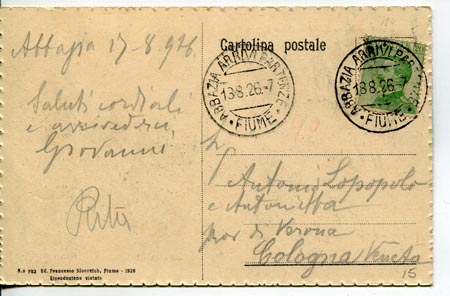 Abbazia 17-8-926
Saluti cordiali
e arrivederci
Giovanni
Rita
Cartolina postale
ABBAZIA ARRIVI E PARTENZE
18.8.26.-7
* FIUME *
ABBAZIA ARRIVI E PARTENZE
18.8.26
* FIUME *
Antonio Lopopolo
e Antonietta
di Verona
Cologna Veneta
15
Ed. Francesco Slocovich, Fiume - 1926
Riproduzione vietata